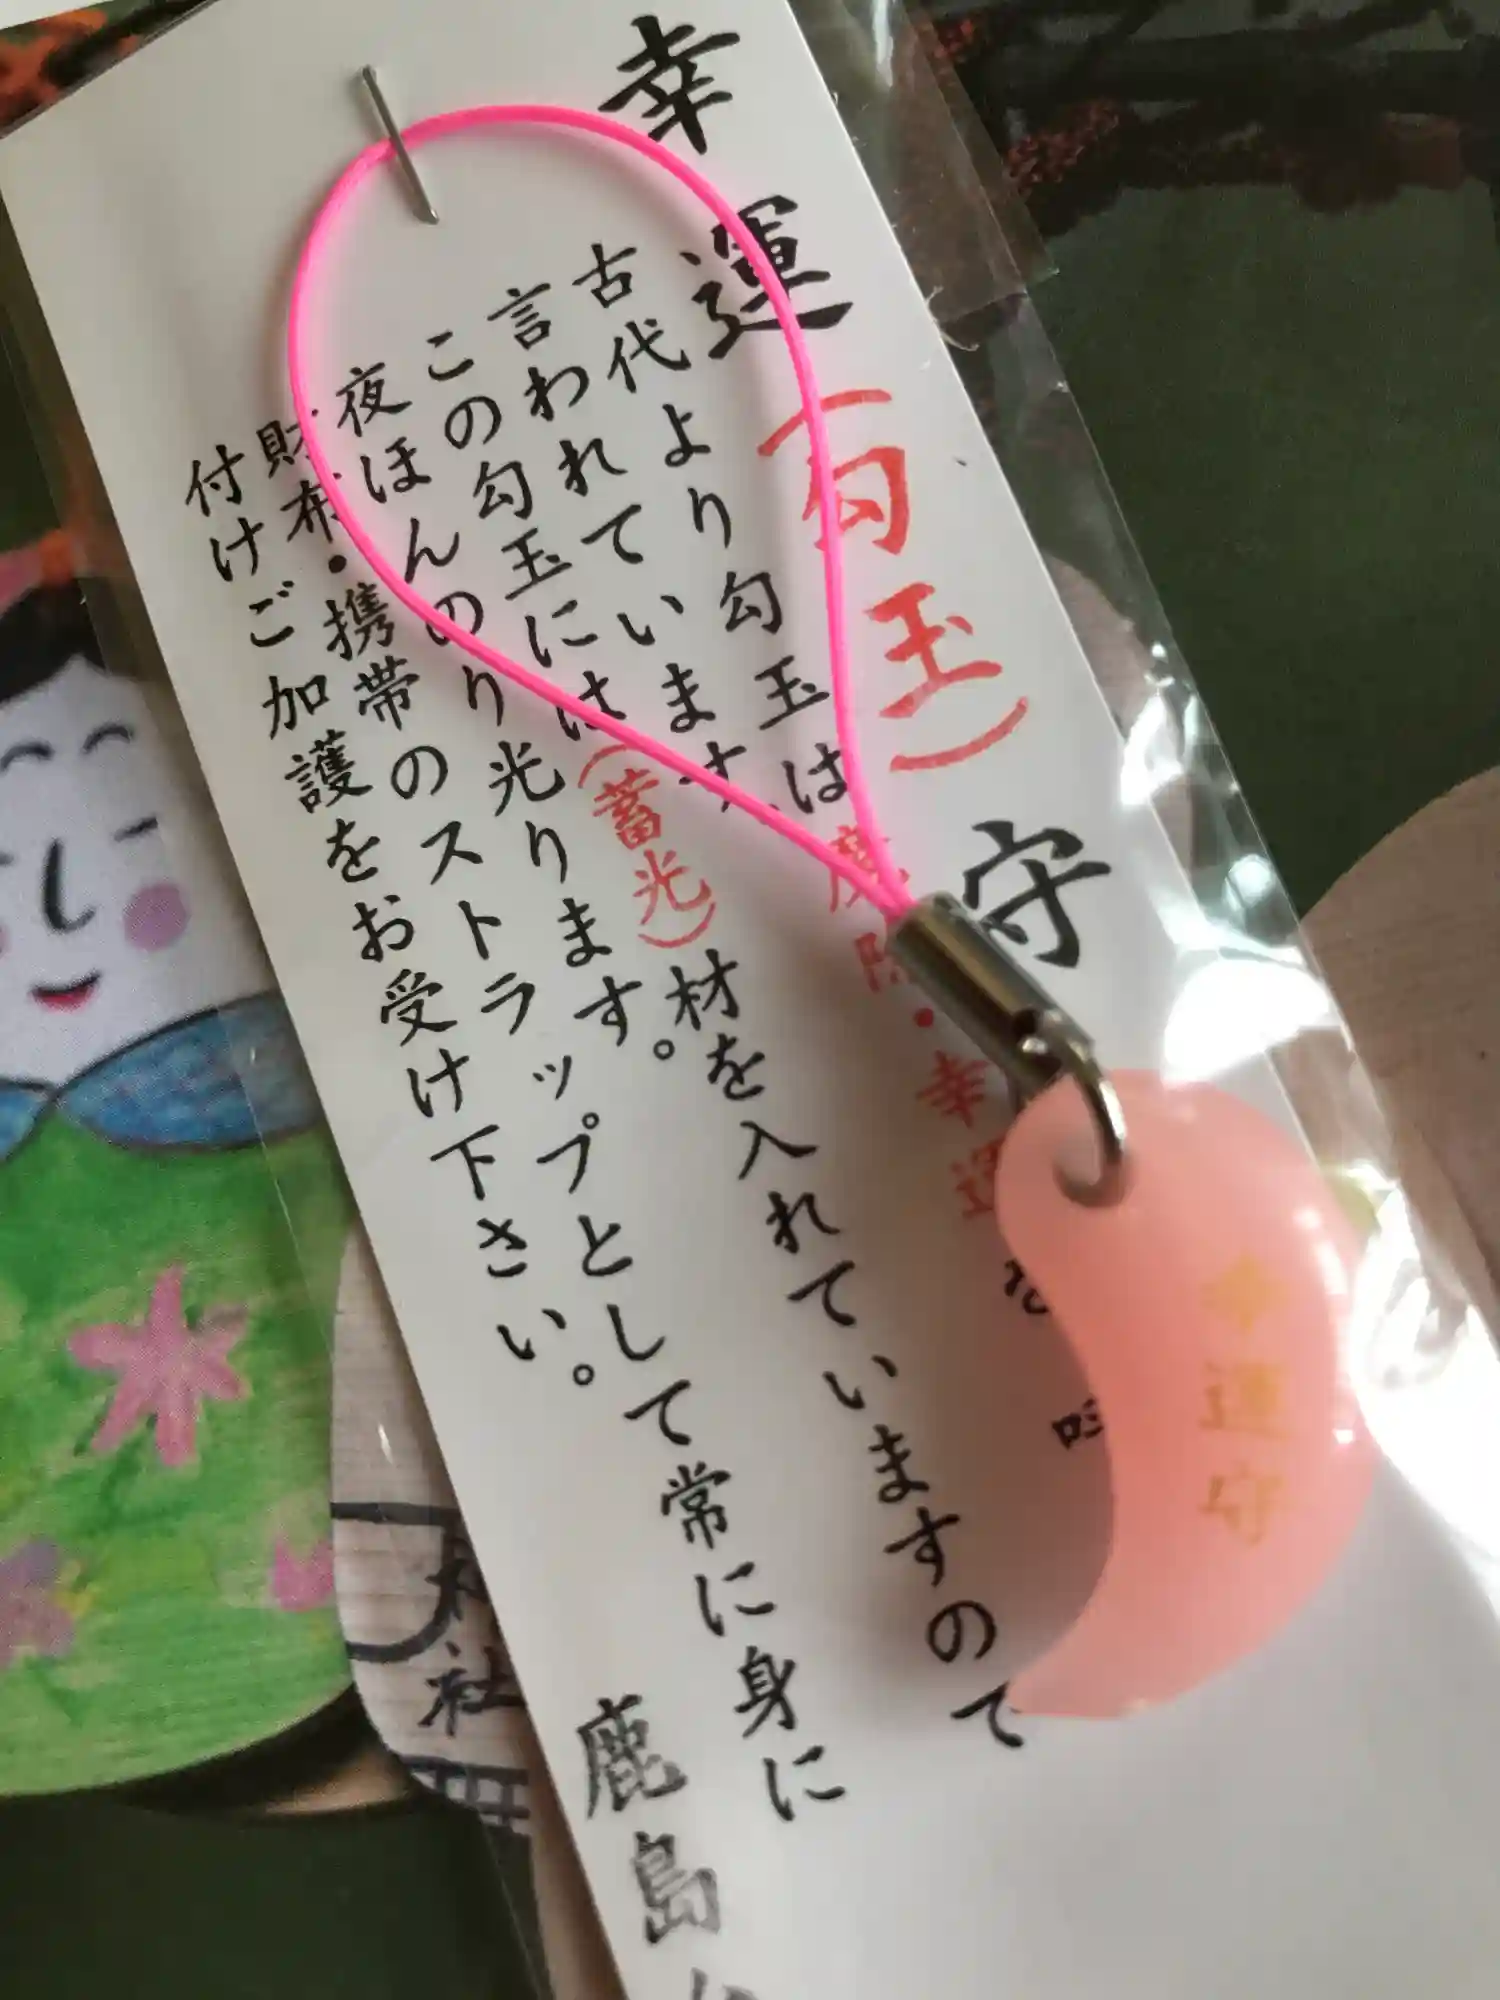 幸運(勾玉)守
古代より勾玉は魔除・幸運を呼
言われています
この勾玉には(蓄光)材を入れていますので
夜ほんのり光ります。
財布・携帯のストラップとして常に身に
付けご加護をお受け下さい。
鹿島
幸運守
社